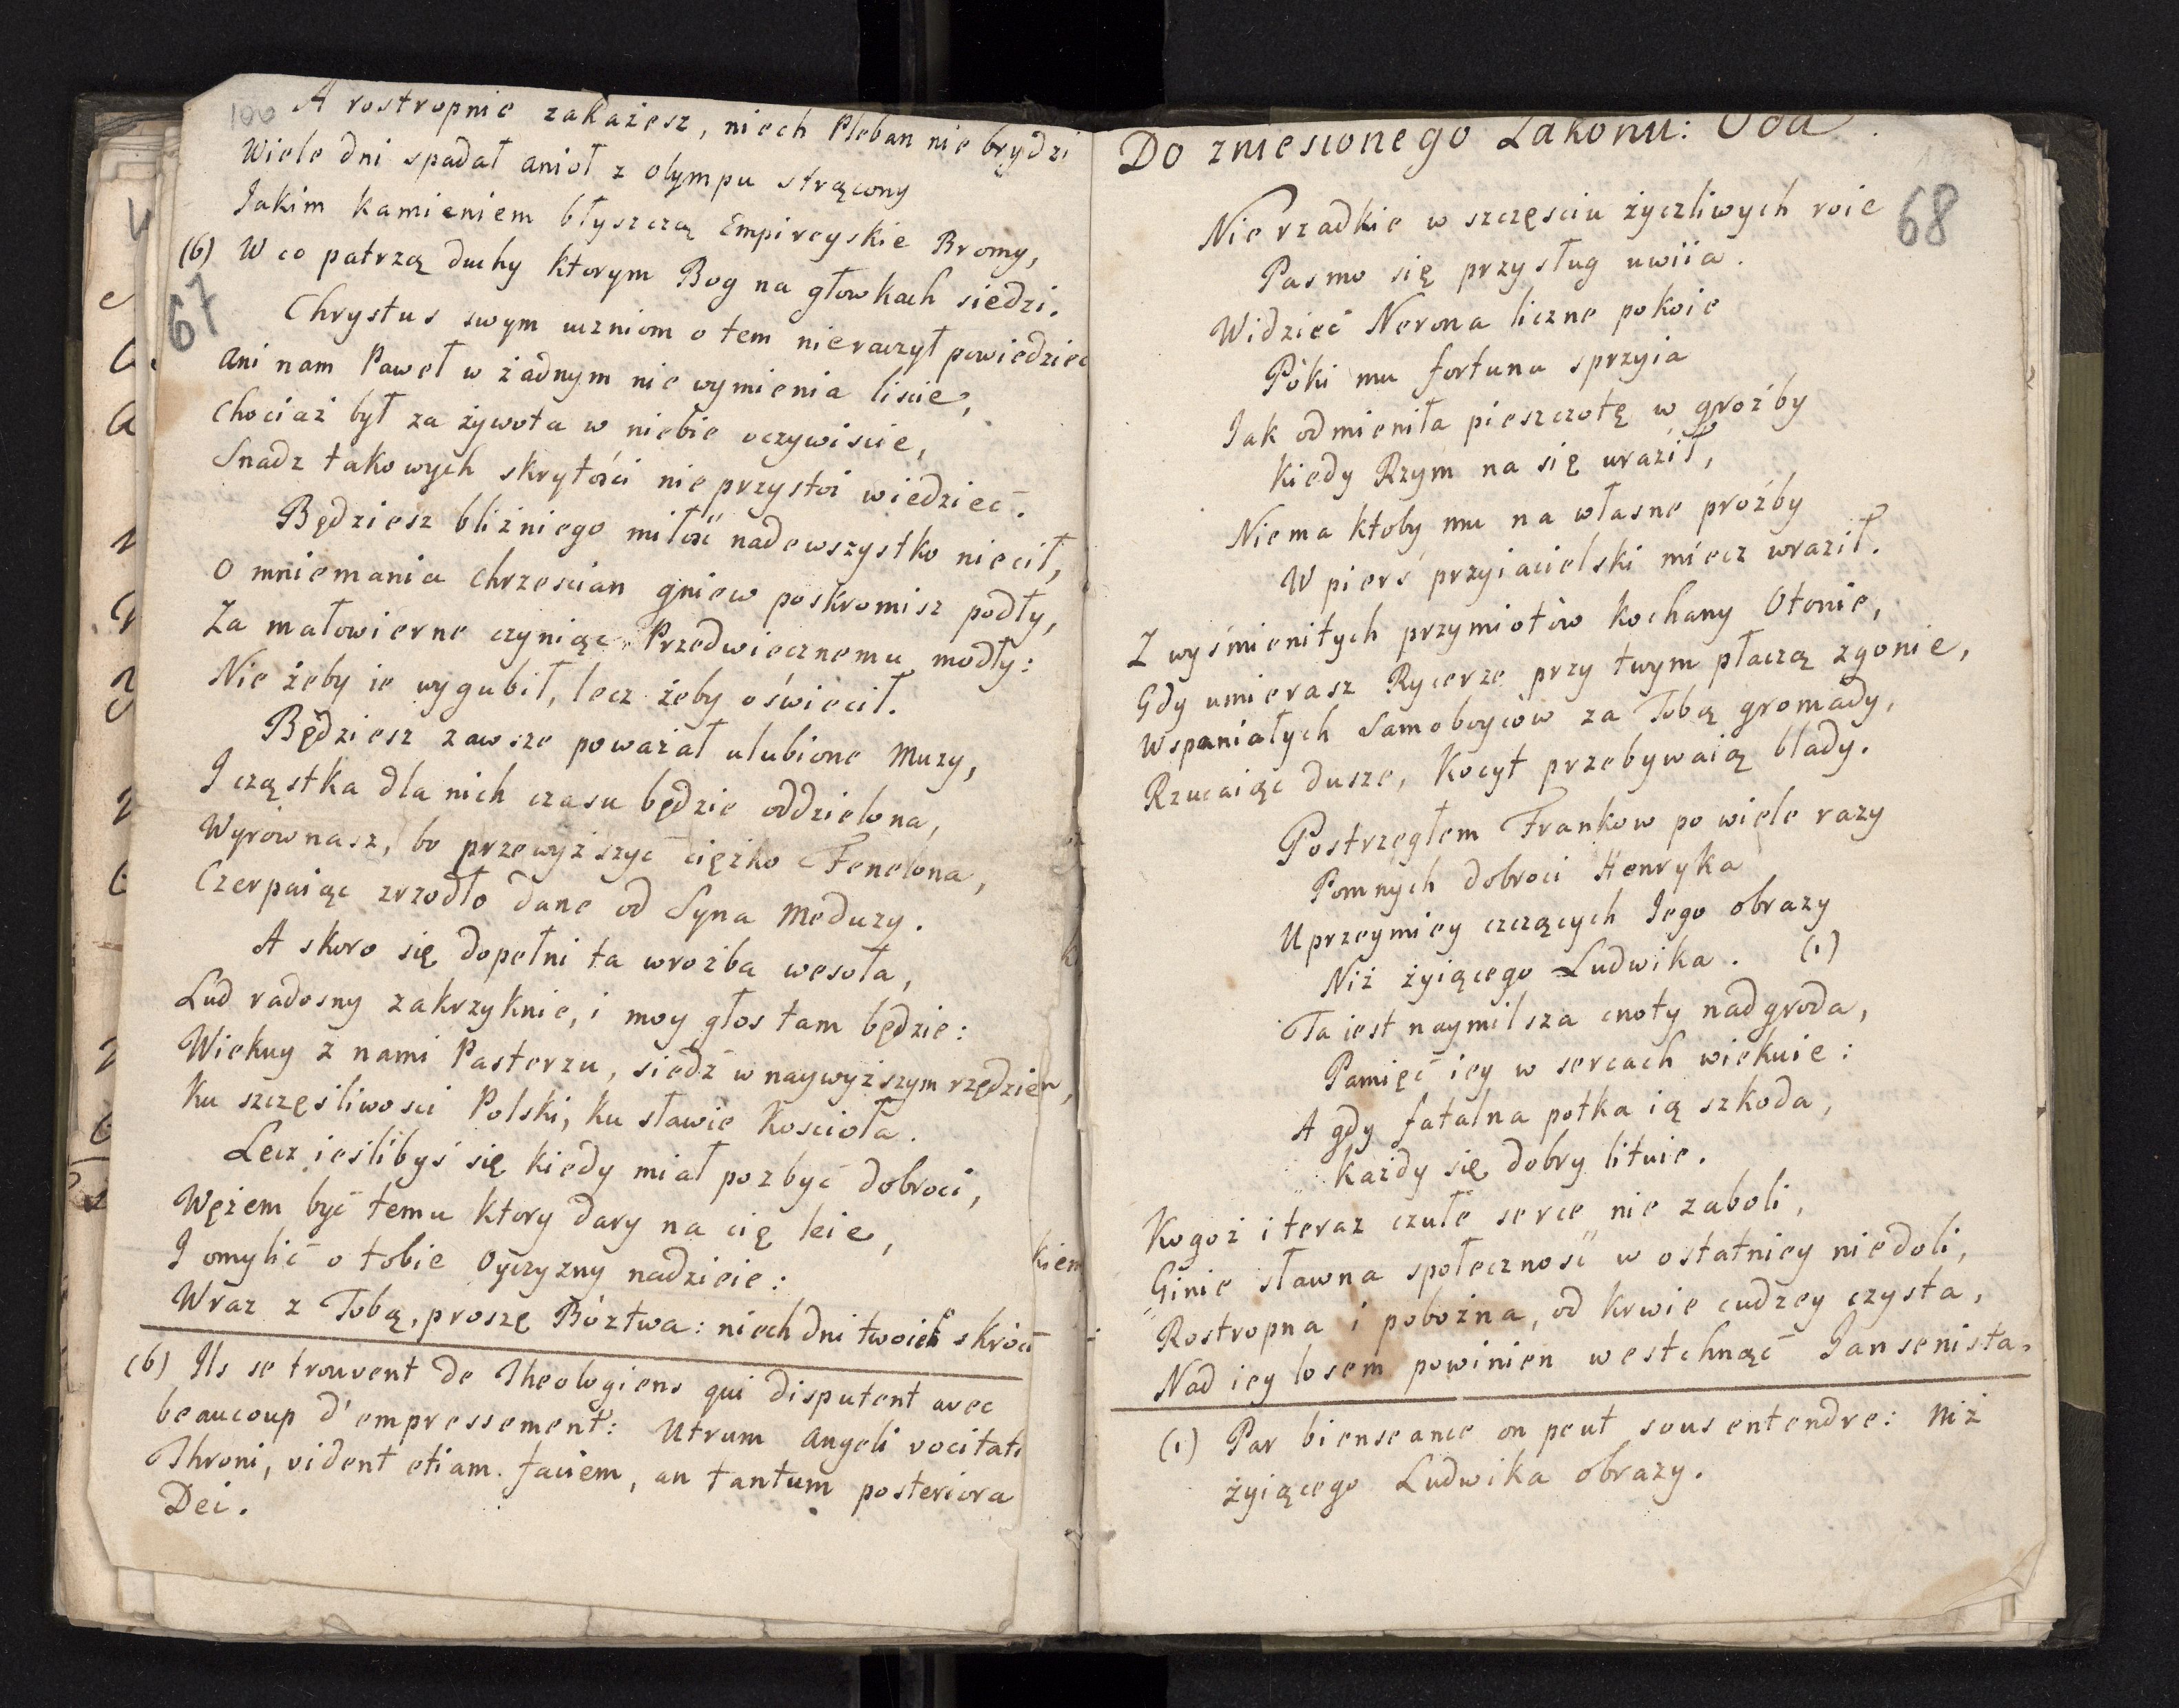 100
A rostropnie zakażesz, niech Pleban nie brydzi
Wiele dni spadał anioł z olympu strącony
Jakim kamieniem błyszczą Empireyskie Bromy,
(6) W co patrzą duchy ktorym Bog na głowkach siedzi.
67
Chrystus swym uczniom o tem nieraczył powiedziec
ani nam Paweł w żadnym nie wymienia liscie,
chociaż był za żywota w niebie oczywiscie,
Snadz takowych skrytości nie przystoi wiedzieć.
Będziesz bliźniego miłość nadewszystko niecił,
O mniemania chrzescian gniew poskromisz podły,
Za małowierne czyniąc Przedwiecznemu modły:
Nie żeby ie wygubił, lecz żeby oświecił.
Będziesz zawsze poważał ulubione Muzy,
I cząstka dla nich czasu będzie oddzielona,
Wyrownasz, bo przewyższyć ciężko Fenelona,
Czerpaiąc zrzodło dane od Syna Meduzy.
A skoro się dopełni ta wrożba wesoła,
Lud radosny zakrzyknie, i moy głos tam będzie:
Wiekuy z nami Pasterzu, siedź w naywyższym rzędzie,
Ku szczęsliwosci Polski, ku sławie Kościoła.
Lecz ieslibyś się kiedy miał pozbyć dobroci,
Wężem być temu ktory dary na cię leie,
I omylić o tobie Oyczyzny nadzieie:
Wraz z Tobą, proszę Bóztwa: niech dni twoich skróci
(6) Ils se trouvent de Theologiens qui disputent avec
beaucoup d'empressement: Utrum Angeli vocitati
Throni, vident etiam faciem, an tantum posteriora
Dei.
kiem
Do zniesionego Zakonu: Oda.
68
Nierzadkie w szczęsciu życzliwych roie
Pasmo się przysług uwiia.
Widzieć Nerona liczne pokoie
Póki mu fortuna sprzyia
Jak odmieniła pieszczotę w groźby
Kiedy Rzym na się uraził,
Niema ktoby mu na własne proźby
W pierś przyiacielski miecz wraził.
Z wyśmienitych przymiotów kochany Otonie,
Gdy umierasz Rycerze przy twym płaczą zgonie,
Wspaniałych Samoboyców za Tobą gromady,
Rzucaiąc dusze, Kocyt przebywaią blady.
Postrzegłem Frankow po wiele razy
Pomnych dobroci Henryka
Uprzeymiey czczących Jego obrazy
Niż żyiącego Ludwika. (1)
Ta iest naymilsza cnoty nadgroda,
Pamięć iey w sercach wiekuie:
A gdy fatalna potka ią szkoda,
Każdy się dobry lituie.
Kogoż i teraz czułe serce nie zaboli,
Ginie sławna społeczność w ostatniey niedoli,
Rostropna i pobożna, od krwie cudzey czysta,
Nad iey losem powinien westchnąć Jansenista.
(1) Par bienseance on peut sousentendre: Niż
żyiącego Ludwika obrazy.